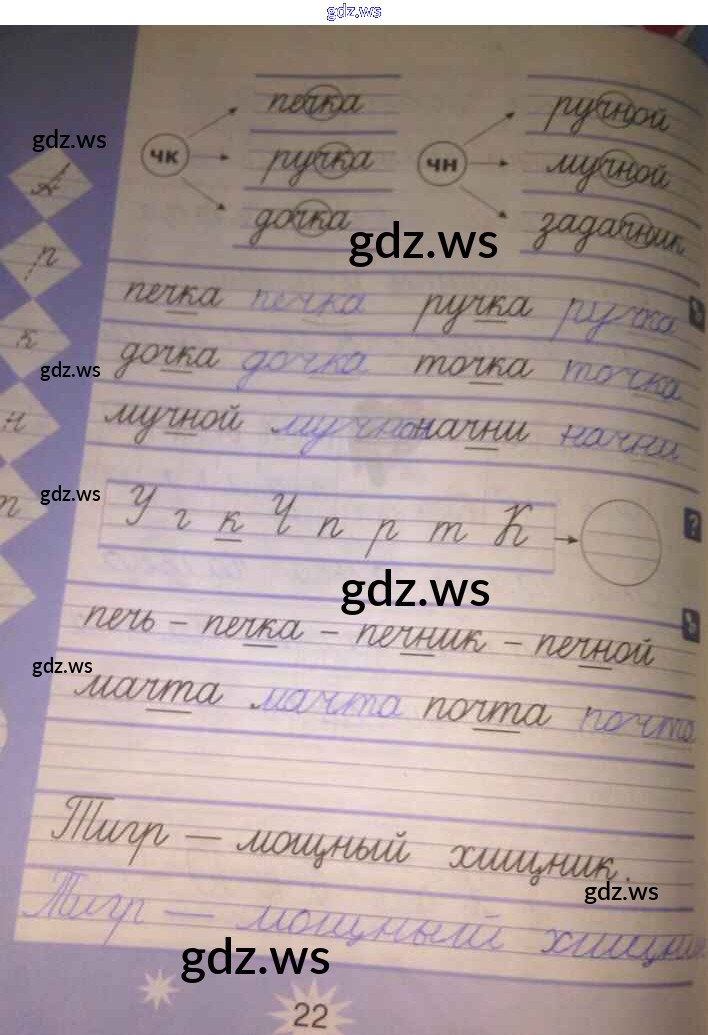 gdz.ws
печка ручной
gdz.ws
чк ручка чн мучной
дочка задачник
gdz.ws
печка печка ручка ручка
дочка дочка точка точка
gdz.ws
мучной мучной начни начни
gdz.ws
к
р
к
н
т
У г к Ч п р т К
?
gdz.ws
печь – печка – печник – печной
gdz.ws
мачта мачта почта почта
Тигр — мощный хищник.
gdz.ws
Тигр — мощный хищник
gdz.ws
22